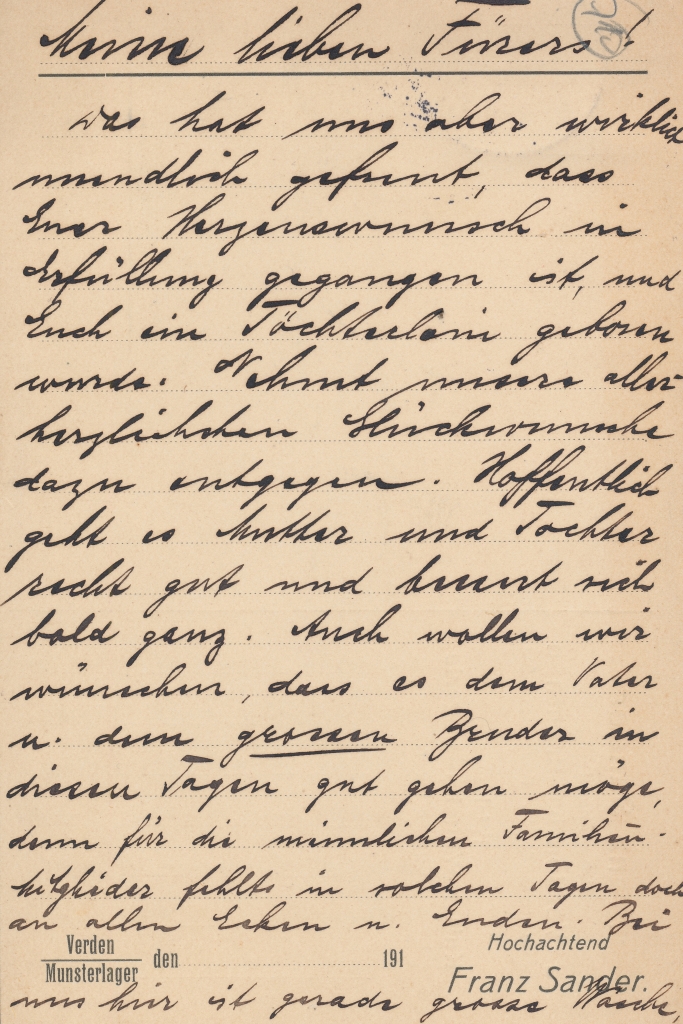 Meine lieben Fürers!
Das hat uns aber wirklich
unendlich gefreut, dass
Euer Herzenswunsch in
Erfüllung gegangen ist, und
Euch ein Töchterlein geboren
wurde. Nehmt unsere aller-
herzlichsten Glückwünsche
dazu entgegen. Hoffentlich
geht es Mutter und Tochter
recht gut und bessert sich
bald ganz. Auch wollen wir
wünschen, dass es dem Vater
u. dem grossen Bruder in
diesen Tagen gut gehen möge,
denn für die männlichen Familien-
mitglieder fehlts in solchen Tagen doch
an allen Ecken u. Enden. Bei
Verden
Munsterlager den 191
Hochachtend
Franz Sander.
uns hier ist gerade grosse Wäsche,